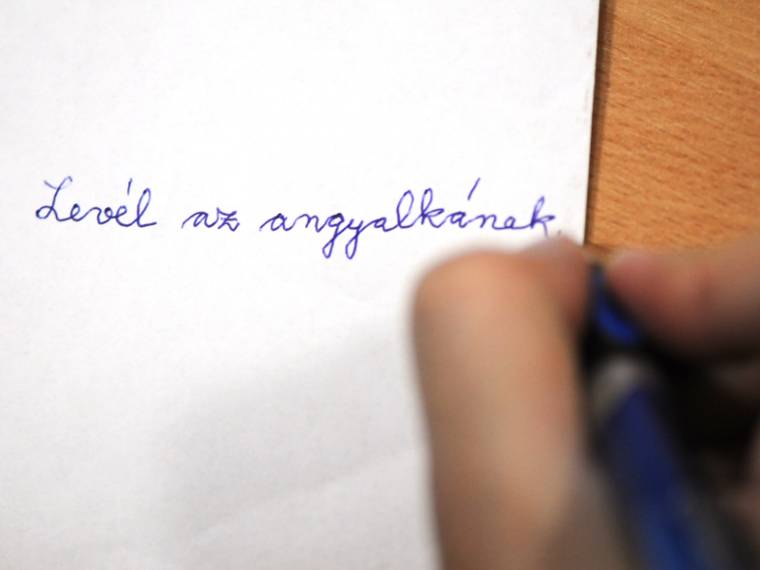 Levél az angyalkának